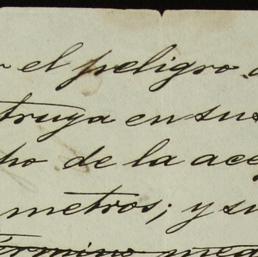 el peligro
truya en sus
cho de la ace
metros; y su
término med